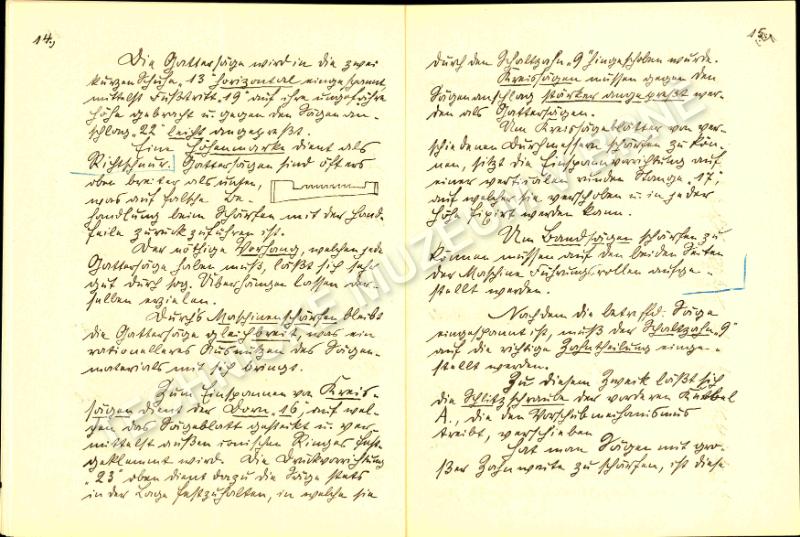 14.,
Die Gattersäge wird in die zwei
kurzen Schuhe „13" horizontal eingespannt,
mittelst Fußtritt „19" auf ihre ungefähre
Höhe gebracht u. gegen den Sägenan-
schlag „22" leicht angepreßt.
Eine Höhenmarke dient als
Richtschnur. Gattersägen sind öfters
oben breiter als unten,
was auf falsche Be-
handlung beim Schärfen mit der Hand-
feile zurückzuführen ist.
Der nöthige Vorhang, welchen jede
Gattersäge haben muß, läßt sich sehr
gut durch sog. Überhängen lassen der-
selben erzielen.
Durch's Maschinenschärfen bleibt
die Gattersäge gleichbreit, was ein
rationelleres Ausnützen des Sägen-
materials mit sich bringt.
Zum Einspannen von Kreis-
sägen dient der Dorn „16", auf wel-
chen das Sägeblatt gesteckt u. ver-
mittelst außen conischen Ringes fest-
geklemmt wird. Die Druckvorrichtung
„23" oben dient dazu die Säge stets
in der Lage festzuhalten, in welche sie
15.,
durch den Schaltzahn „9" hingeschoben wurde.
Kreissägen müssen gegen den
Sägenanschlag stärker angepreßt wer-
den als Gattersägen.
Um Kreissägeblätter von ver-
schiedenen Durchmessern schärfen zu kön-
nen, sitzt die Einspannvorrichtung auf
einer vertikalen runden Stange „17",
auf welcher sie verschoben u. in jeder
Höhe fixirt werden kann.
Um Bandsägen schärfen zu
können müssen auf den beiden Seiten
der Maschine Führungsrollen aufge-
stellt werden.
Nachdem die betreffd. Säge
eingespannt ist, muß der Schaltzahn „9"
auf die richtige Zahntheilung einge-
stellt werden.
Zu diesem Zweck läßt sich
die Schlitzschraube der vorderen Kurbel
A., die den Vorschubmechanismus
treibt, verschieben
Hat man Sägen mit gro-
ßer Zahnweite zu schärfen, ist diese
TECHNICKÉ MUZEUM V BRNĚ